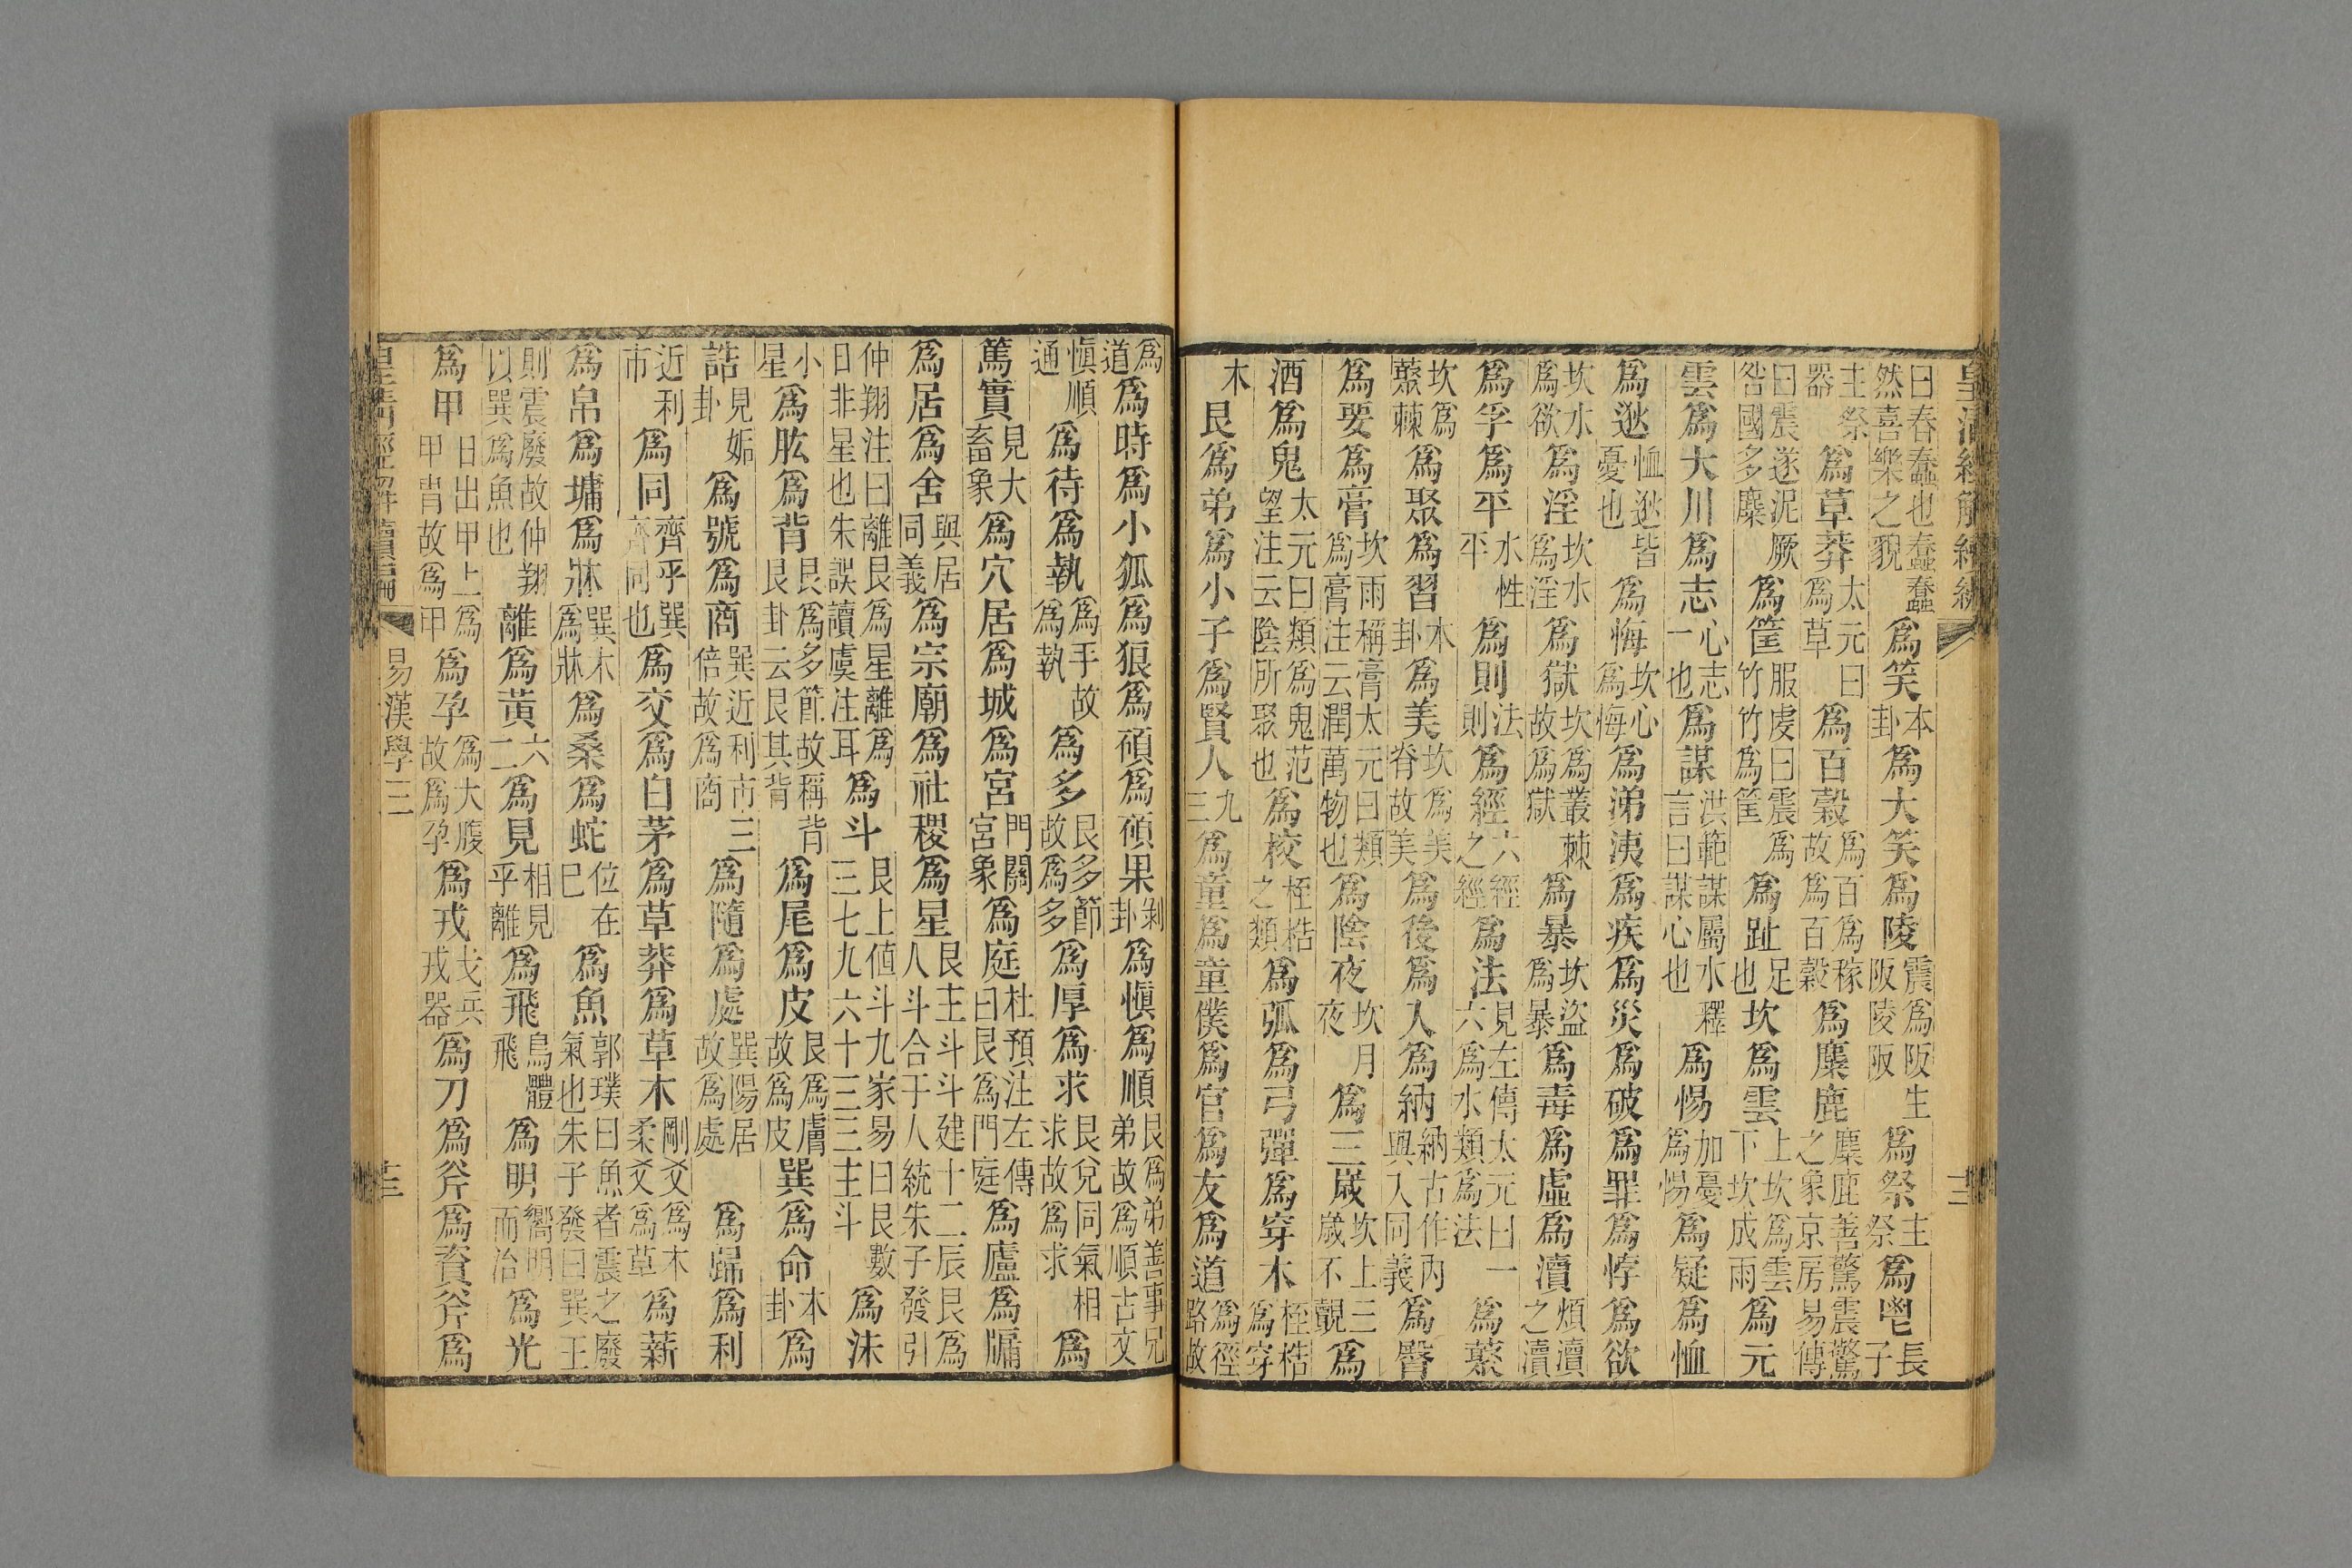 皇清經解續編　十二
曰春蠢也蠢蠢然喜樂之貌爲笑本卦爲大笑爲陵震爲阪生陵阪爲祭主祭爲鬯長子
主祭器爲草莽太元曰爲草爲百穀爲百爲稼故爲百穀爲麋鹿麋鹿善驚震驚之象京房易傳
曰震遂泥厥咎國多麋爲筐服虔曰震爲竹竹爲筐爲趾足也坎爲雲上坎爲雲下坎成雨爲元
雲爲大川爲志心志一也爲謀洪範謀屬水釋言曰謀心也爲惕加憂爲惕爲疑爲恤
爲逖恤逖皆憂也爲悔坎心爲悔爲涕洟爲疾爲災爲破爲罪爲悖爲欲
坎水爲欲爲淫坎水爲淫爲獄坎爲叢棘故爲獄爲暴坎盜爲暴爲毒爲虛爲瀆煩瀆之瀆
爲孚爲平水性平爲則法則爲經六經之經爲法見左傳太元曰一六爲水類爲法爲藂
坎爲藂棘爲聚爲習本卦爲美坎爲美脊故美爲後爲入爲納納古作內與入同義爲臀
爲要爲膏坎雨稱膏太元曰類爲膏注云潤萬物也爲陰夜坎月夜爲三歲坎上三歲不覿爲
酒爲鬼太元曰類爲鬼范望注云陰所聚也爲校桎梏之類爲弧爲弓彈爲穿木桎梏爲穿
木艮爲弟爲小子爲賢人九三爲童爲童僕爲官爲友爲道爲徑路故
爲道爲時爲小狐爲狼爲碩爲碩果剝卦爲慎爲順艮爲弟善事兄弟故爲順古文
慎順通爲待爲執爲手故爲執爲多艮多節故爲多爲厚爲求艮兌同氣相求故爲求爲
篤實見大畜象爲穴居爲城爲宮門闕宮象爲庭杜預注左傳曰艮爲門庭爲廬爲牖
爲居爲舍與居同義爲宗廟爲社稷爲星艮主斗斗建十二辰艮爲人斗合于人統朱子發引
仲翔注曰離艮爲星離爲日非星也朱誤讀虞注耳爲斗艮上値斗九家易曰艮數三七九六十三三主斗爲沬
小星爲肱爲背艮爲多節故稱背艮卦云艮其背爲尾爲皮艮爲膚故爲皮巽爲命本卦爲
誥見姤卦爲號爲商巽近利市三倍故爲商爲隨爲處巽陽居故爲處爲歸爲利
近利市爲同齊乎巽齊同也爲交爲白茅爲草莽爲草木剛爻爲木柔爻爲草爲薪
爲帛爲墉爲牀巽木爲牀爲桑爲蛇位在巳爲魚郭璞曰魚者震之廢氣也朱子發曰巽王
則震廢故仲翔以巽爲魚也離爲黃六二爲見相見乎離爲飛鳥體飛爲明嚮明而治爲光
爲甲日出甲上爲甲冑故爲甲爲孕爲大腹故爲孕爲戎戈兵戎器爲刀爲斧爲資斧爲
皇清經解續編　易漢學三　十三